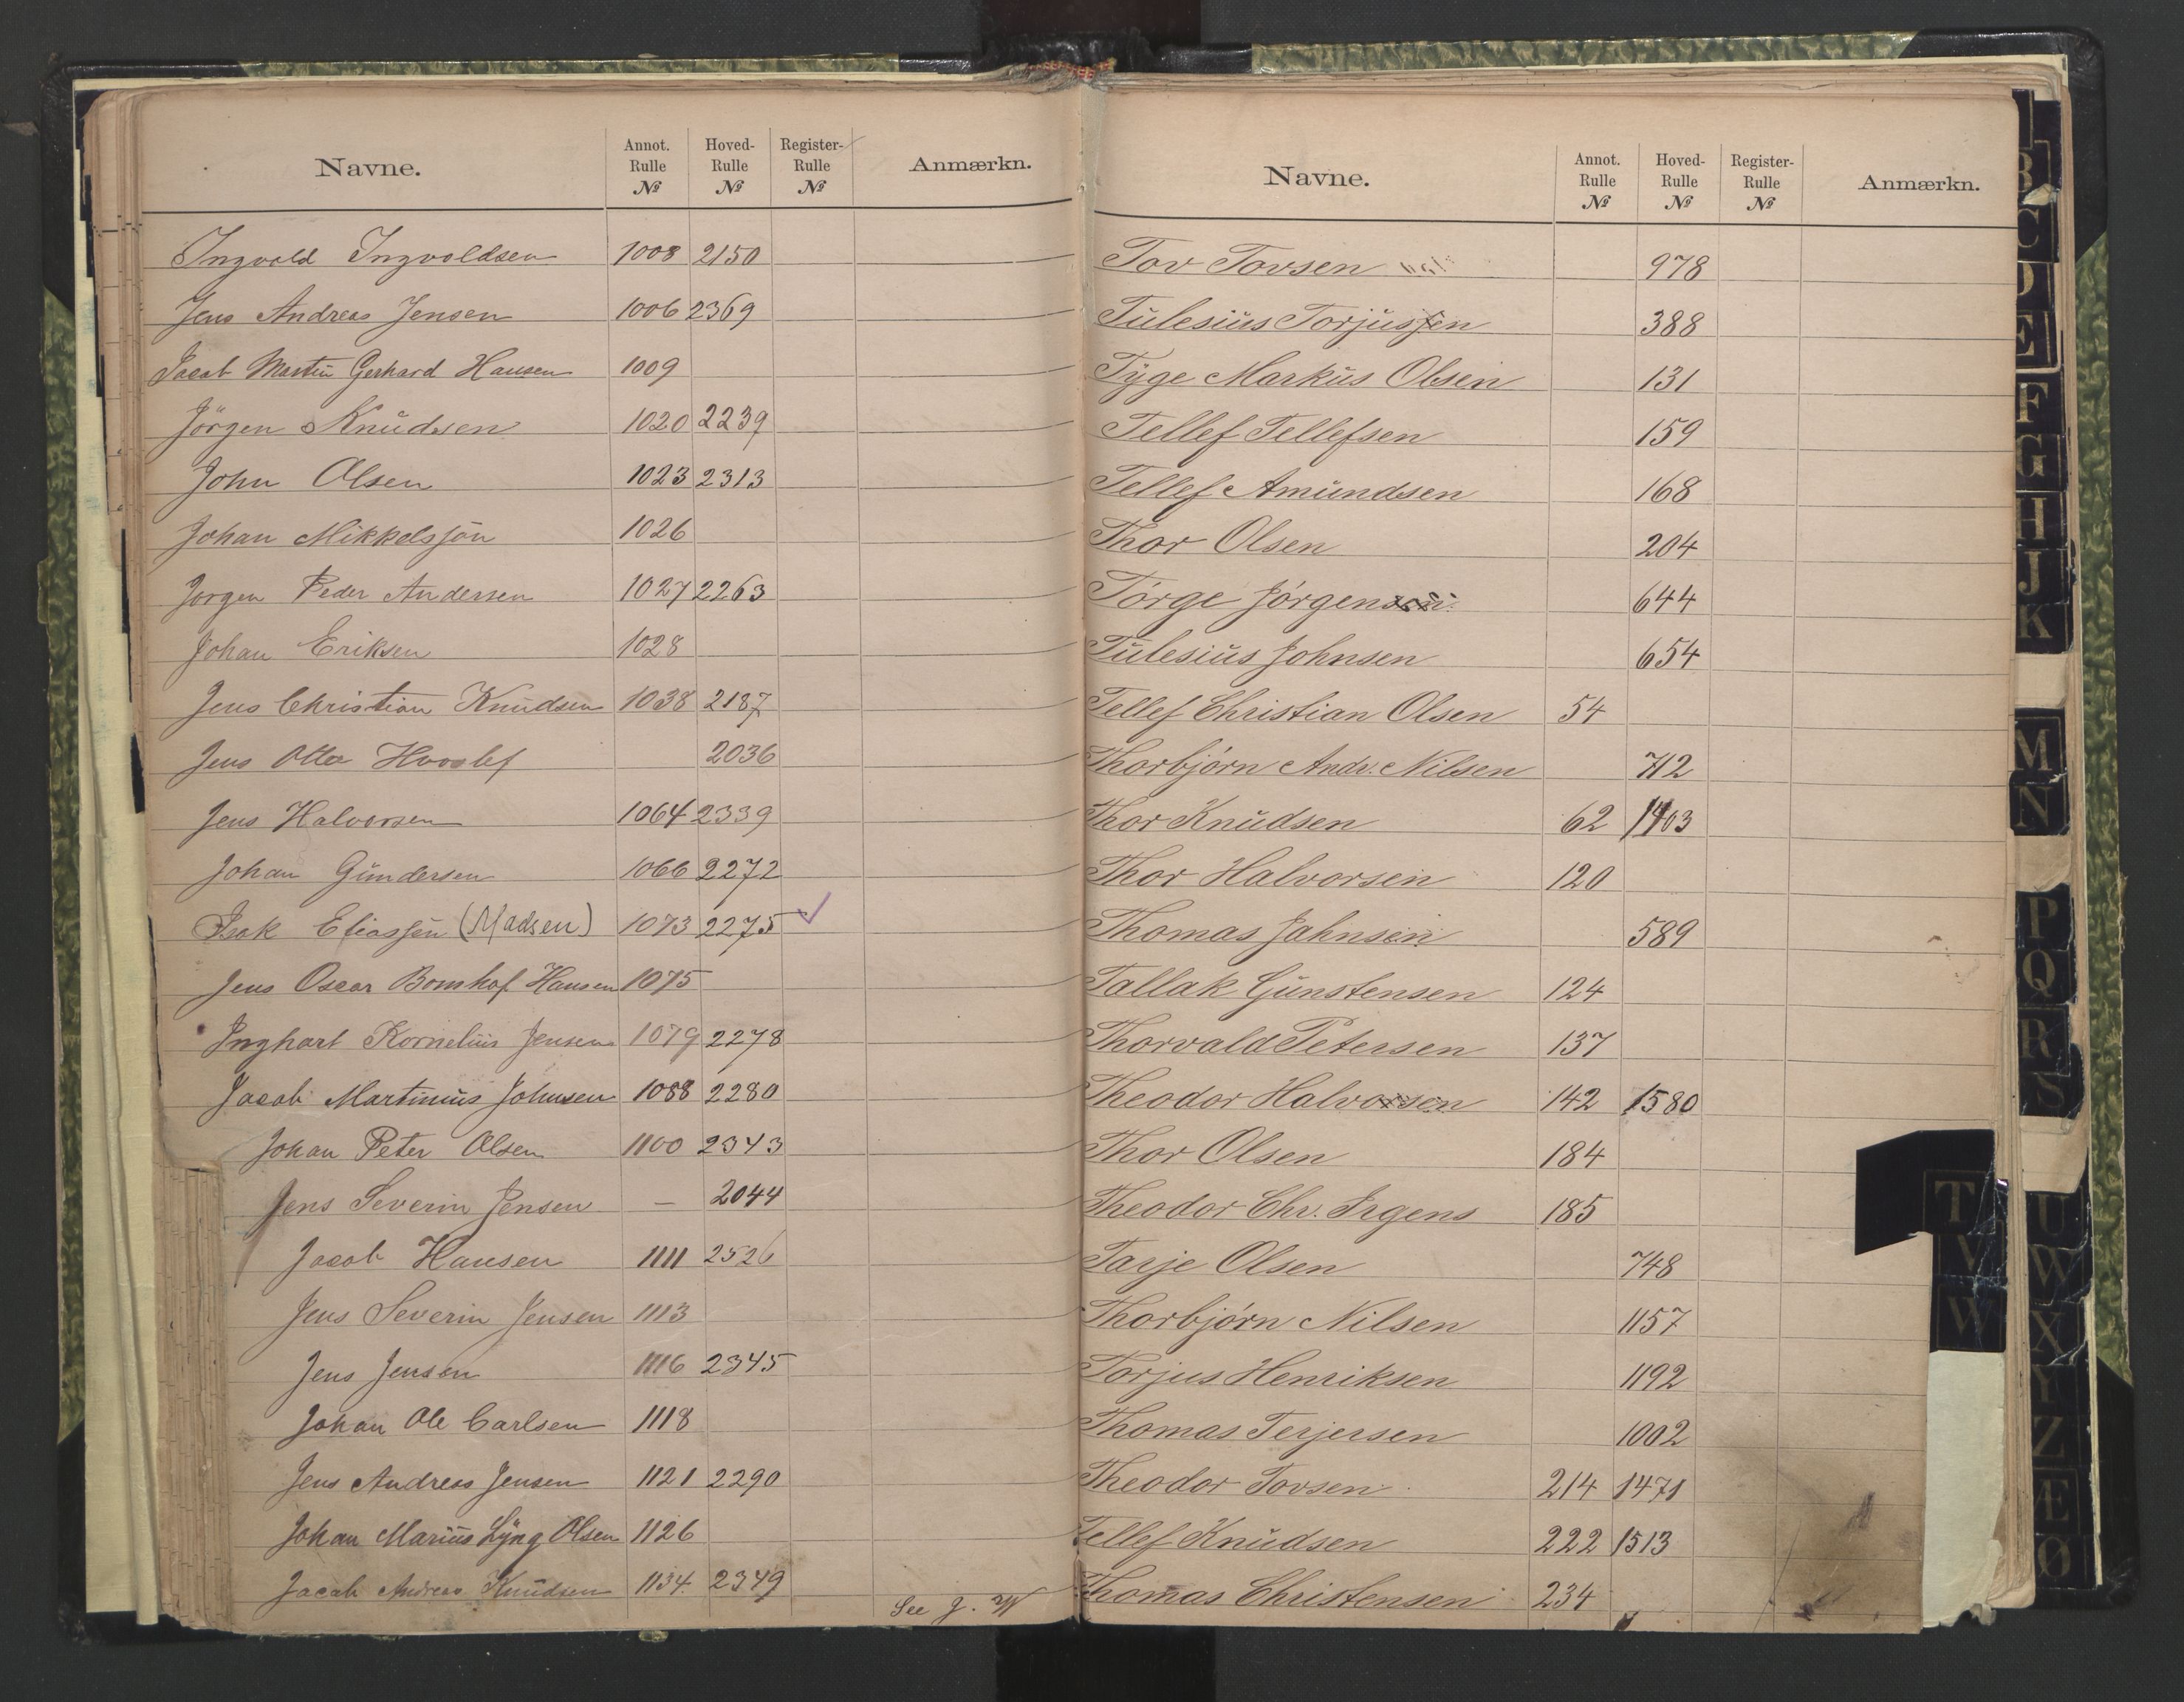 Navne. Annot. Rulle № Hoved-Rulle № Register-Rulle № Anmærkn.
Ingvald Ingvoldsen 1008 2150
Jens Andreas Jensen 1006 2369
Jacob Martin Gerhard Hansen 1009
Jörgen Knudsen 1020 2239
John Olsen 1023 2313
Johan Mikkelsjön 1026
Jørgen Peder Andersen 1027 2263
Johan Eriksen 1028
Jens Christian Knudsen 1038 2187
Jens Otto Hvoslef 2036
Jens Halvorsen 1064 2339
Johan Gundersen 1066 2272
Isak Eliassen (Madsen) 1073 2275 ✓
Jens Oscar Bomhof Hansen 1075
Inghart Kornelius Jensen 1079 2278
Jacob Martinius Johnsen 1088 2280
Johan Peter Olsen 1100 2343
Jens Severin Jensen — 2044
Jacob Hansen 1111 2526
Jens Severin Jensen 1113
Jens Jensen 1116 2345
Johan Ole Carlsen 1118
Jens Andreas Jensen 1121 2290
Johan Marius Lyng Olsen 1126
Jacob Andreas Knudsen 1134 2349
See J. W
Navne. Annot. Rulle № Hoved-Rulle № Register-Rulle № Anmærkn.
Tov Tovsen 978
Tulesius Torjussen 388
Tyge Markus Olsen 131
Tellef Tellefsen 159
Tellef Amundsen 168
Thor Olsen 204
Tørge Jørgensen 644
Tulesius Johnsen 654
Tellef Christian Olsen 54
Thorbjørn Andr. Nilsen 712
Thor Knudsen 62 1403
Thor Halvorsen 120
Thomas Jahnsen 589
Tallak Gunstensen 124
Thorvald Petersen 137
Theodor Halvorsen 142 1580
Thor Olsen 184
Theodor Chr. Irgens 185
Tarje Olsen 748
Thorbjørn Nilsen 1157
Torjus Henriksen 1192
Thomas Terjersen 1002
Theodor Tovsen 214 1471
Tellef Knudsen 222 1513
Thomas Christensen 234
B
C
D
E
F
G
H
J
K
M
N
P
Q
R
S
T
V
W
U
W
X
Y
Z
Æ
Ø